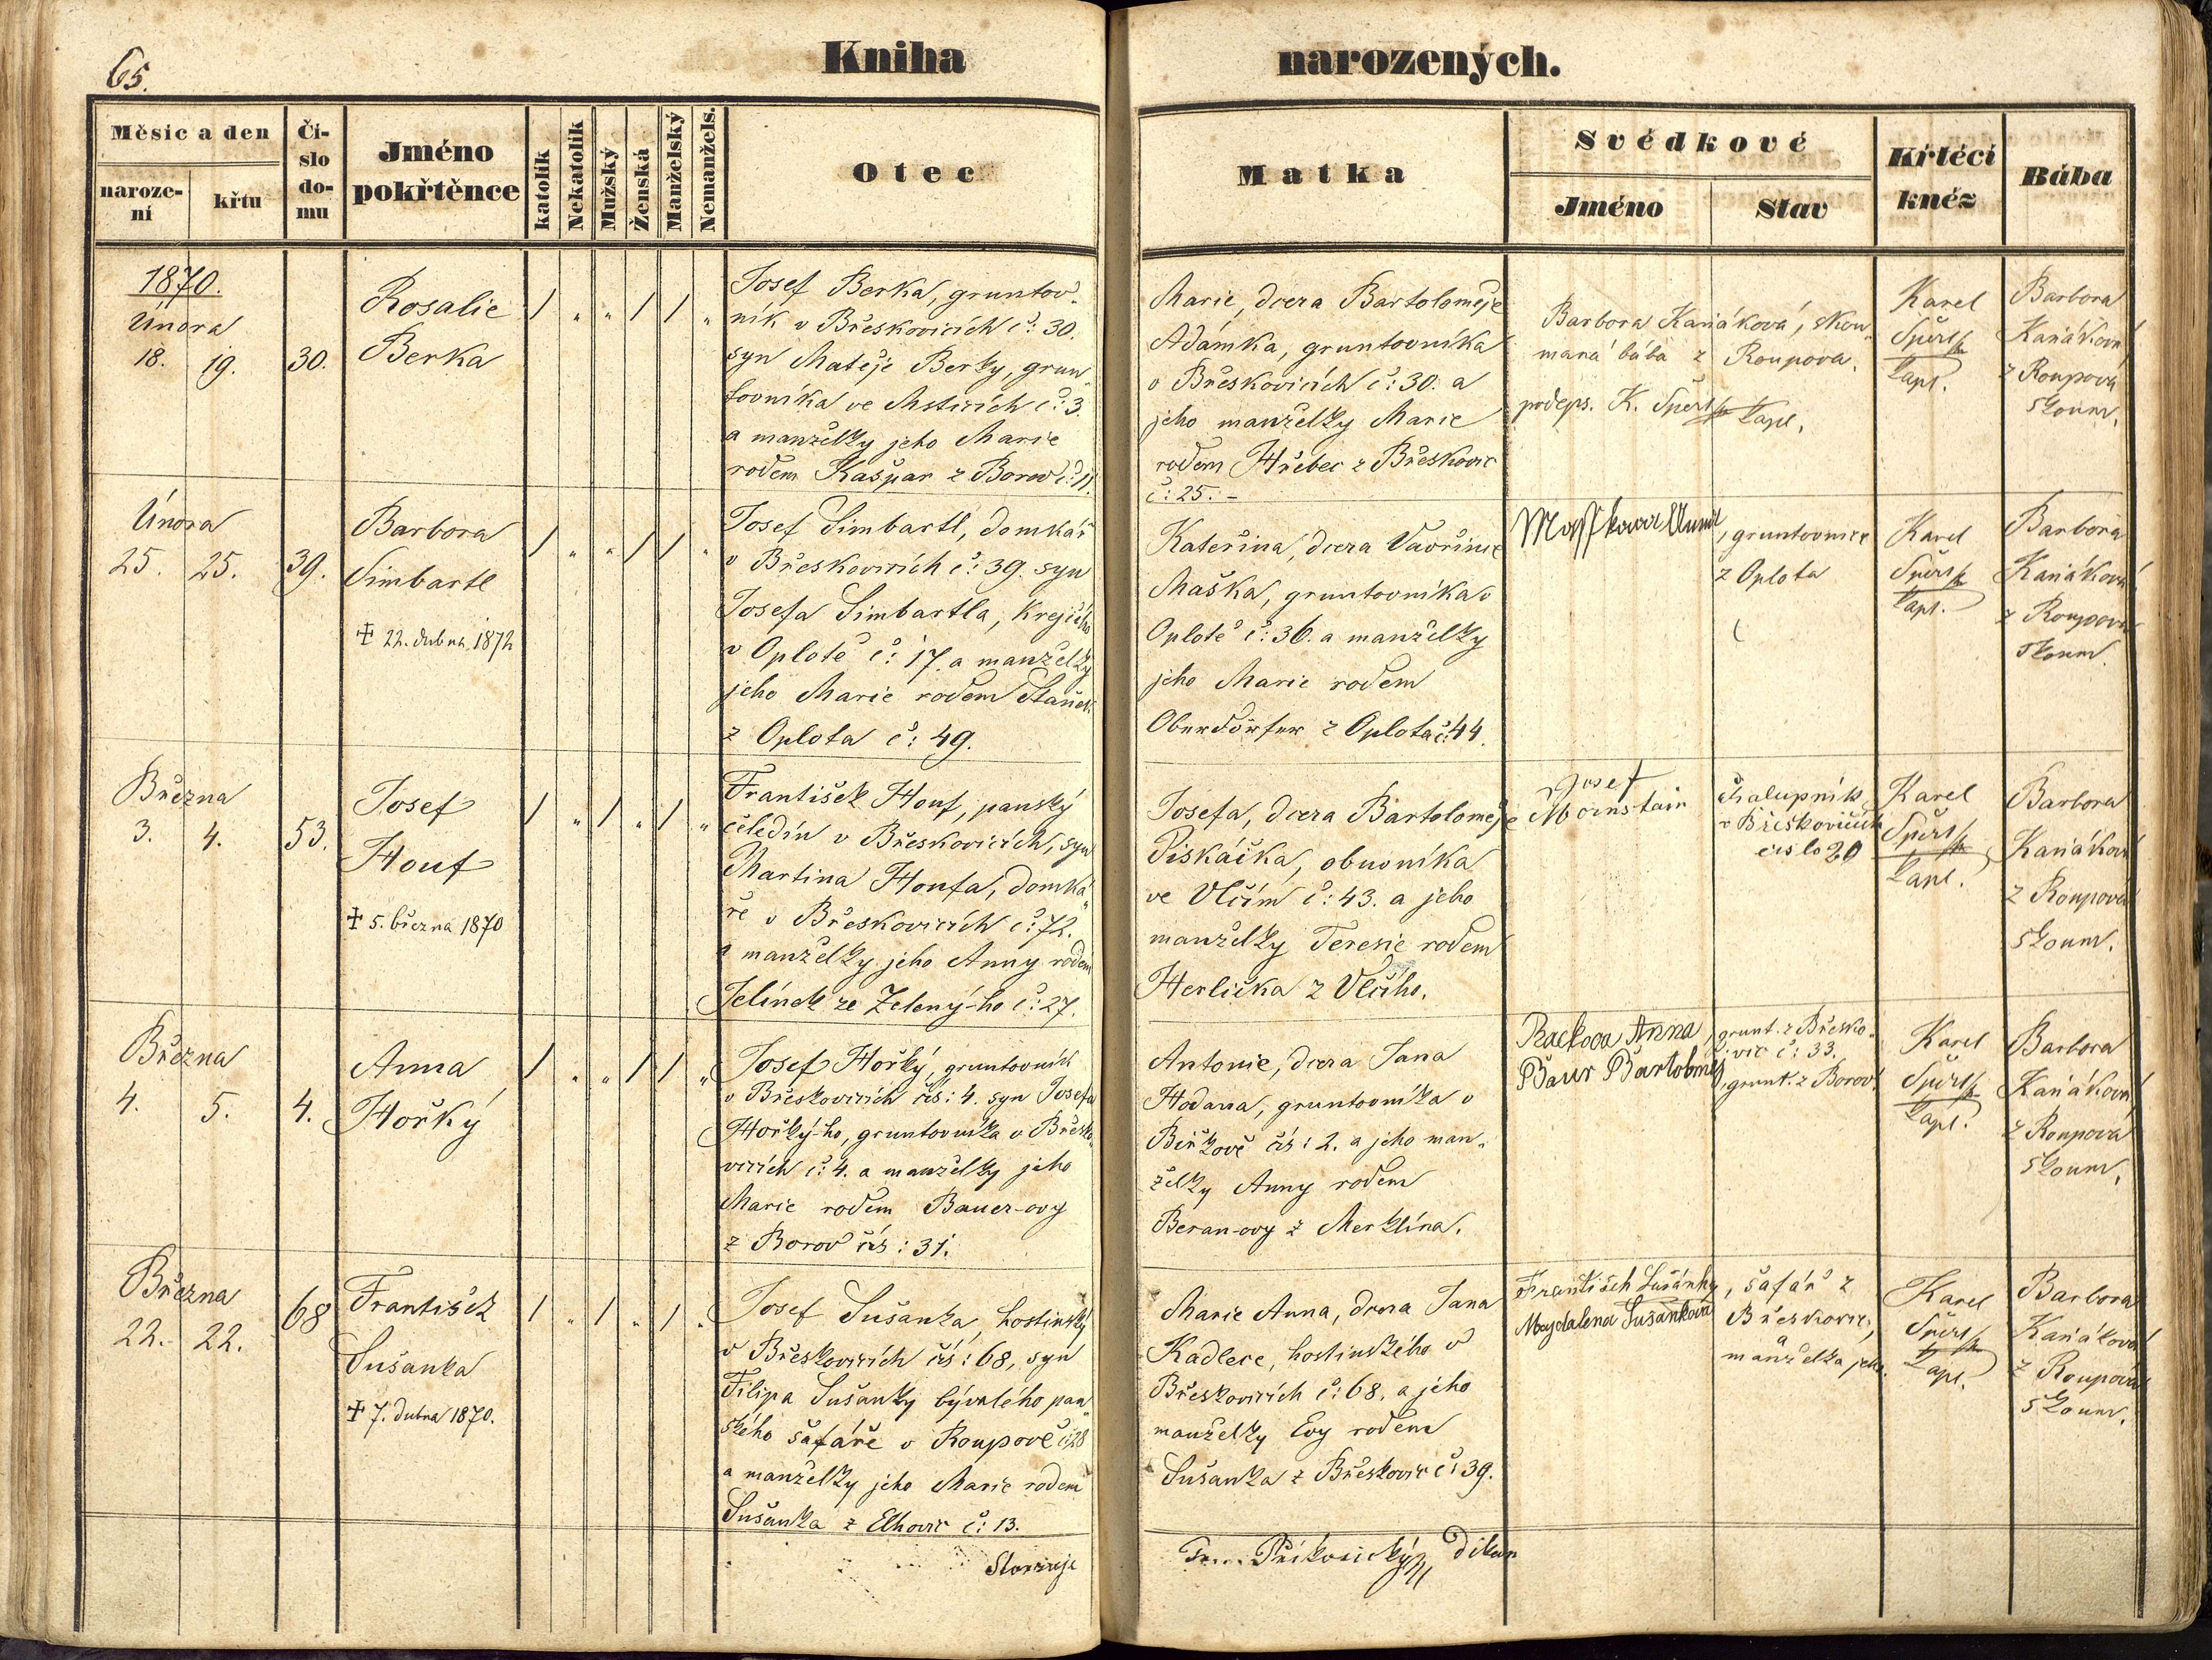 65.
Kniha narozených.
Měsíc a den
naroze-
ní
křtu
Čí-
slo
do-
mu
Jméno
pokřtěnce
katolík
Nekatolík
Mužský
Ženská
Manželský
Nemanžels.
Otec
Matka
Svědkové
Jméno
Stav
Křtěcí
kněz
Bába
1870.
Února
18. 19. 30.
Rosalie
Berka
/ „ „ / / „
Josef Berka, gruntov-
ník v Břeskovicích č: 30.
syn Matěje Berky, grun„
tovníka ve Msticích č: 3.
a manželky jeho Marie
rodem Kašpar z Borov č: 11.
Marie, dcera Bartoloměje
Adámka, gruntovníka
v Břeskovicích č: 30. a
jeho manželky Marie
rodem Hřebec z Břeskovic
č: 25. –
Barbora Kaňáková, skou„
maná bába z Roupova.
podeps. K. Kapl.
Karel
Kapl.
Barbora
Kaňáková
z Roupova
skoum.
Února
25. 25. 39.
Barbora
Simbartl
✝ 22. dubna 1872
/ „ „ / / „
Josef Simbartl, domkář
v Břeskovicích č: 39. syn
Josefa Simbartla, Krejčího
v Oplotě č: 17. a manželky
jeho Marie rodem Staněk
z Oplota č: 49.
Kateřina, dcera Vavřince
Maška, gruntovníka v
Oplotě č: 36. a manželky
jeho Marie rodem
Oberdörfer z Oplota č: 44.
, gruntovnice
z Oplota
Karel
Kapl.
Barbora
Kaňáková
z Roupova
skoum.
Března
3. 4. 53.
Josef
Houf
✝ 5. března 1870
/ „ / „ / „
František Houf, panský
čeledín v Břeskovicích, syn
Martina Houfa, domká„
ře v Břeskovicích č: 72.
a manželky jeho Anny rodem
Jelínek ze Zelený-ho č: 27.
Josefa, dcera Bartoloměje
Piskáčka, obuvníka
ve Vlčím č: 43. a jeho
manželky Teresie rodem
Herlička z Vlčího.
Josef
Mornstain
Chalupník
v Břeskovicích
číslo 20
Karel
Kapl.
Barbora
Kaňáková
z Roupova
skoum.
Března
4. 5. 4.
Anna
Hořký
/ „ „ / / „
Josef Hořký, gruntovník
v Břeskovicích čís: 4. syn Josefa
Hořký-ho, gruntovníka v Břesko„
vicích č: 4. a manželky jeho
Marie rodem Bauer-ovy
z Borov čís: 31.
Antonie, dcera Jana
Hodana, gruntovníka v
Biřkově čís: 2. a jeho man„
želky Anny rodem
Beran-ovy z Merklína.
Rackova Anna
Baur Bartoloměj
, grunt. z Břesko„
vic č: 33.
, grunt. z Borov
Karel
Kapl.
Barbora
Kaňáková
z Roupova
skoum.
Března
22. 22. 68
František
Sušanka
✝ 7. dubna 1870.
/ „ / „ / „
Josef Sušanka, hostinský
v Břeskovicích čís: 68, syn
Filipa Sušanky bývalého pan„
ského šafáře v Roupově č: 28
a manželky jeho Marie rodem
Sušanka z Elhovic č: 13.
Marie Anna, dcera Jana
Kadlece, hostinského v
Břeskovicích č: 68. a jeho
manželky Evy rodem
Sušanka z Břeskovic č: 39.
František Sušánka
Magdalena Sušankova
, šafář z
Břeskovic,
a
manželka jeho.
Karel
Kapl.
Barbora
Kaňáková
z Roupova
skoum.
Příkosický